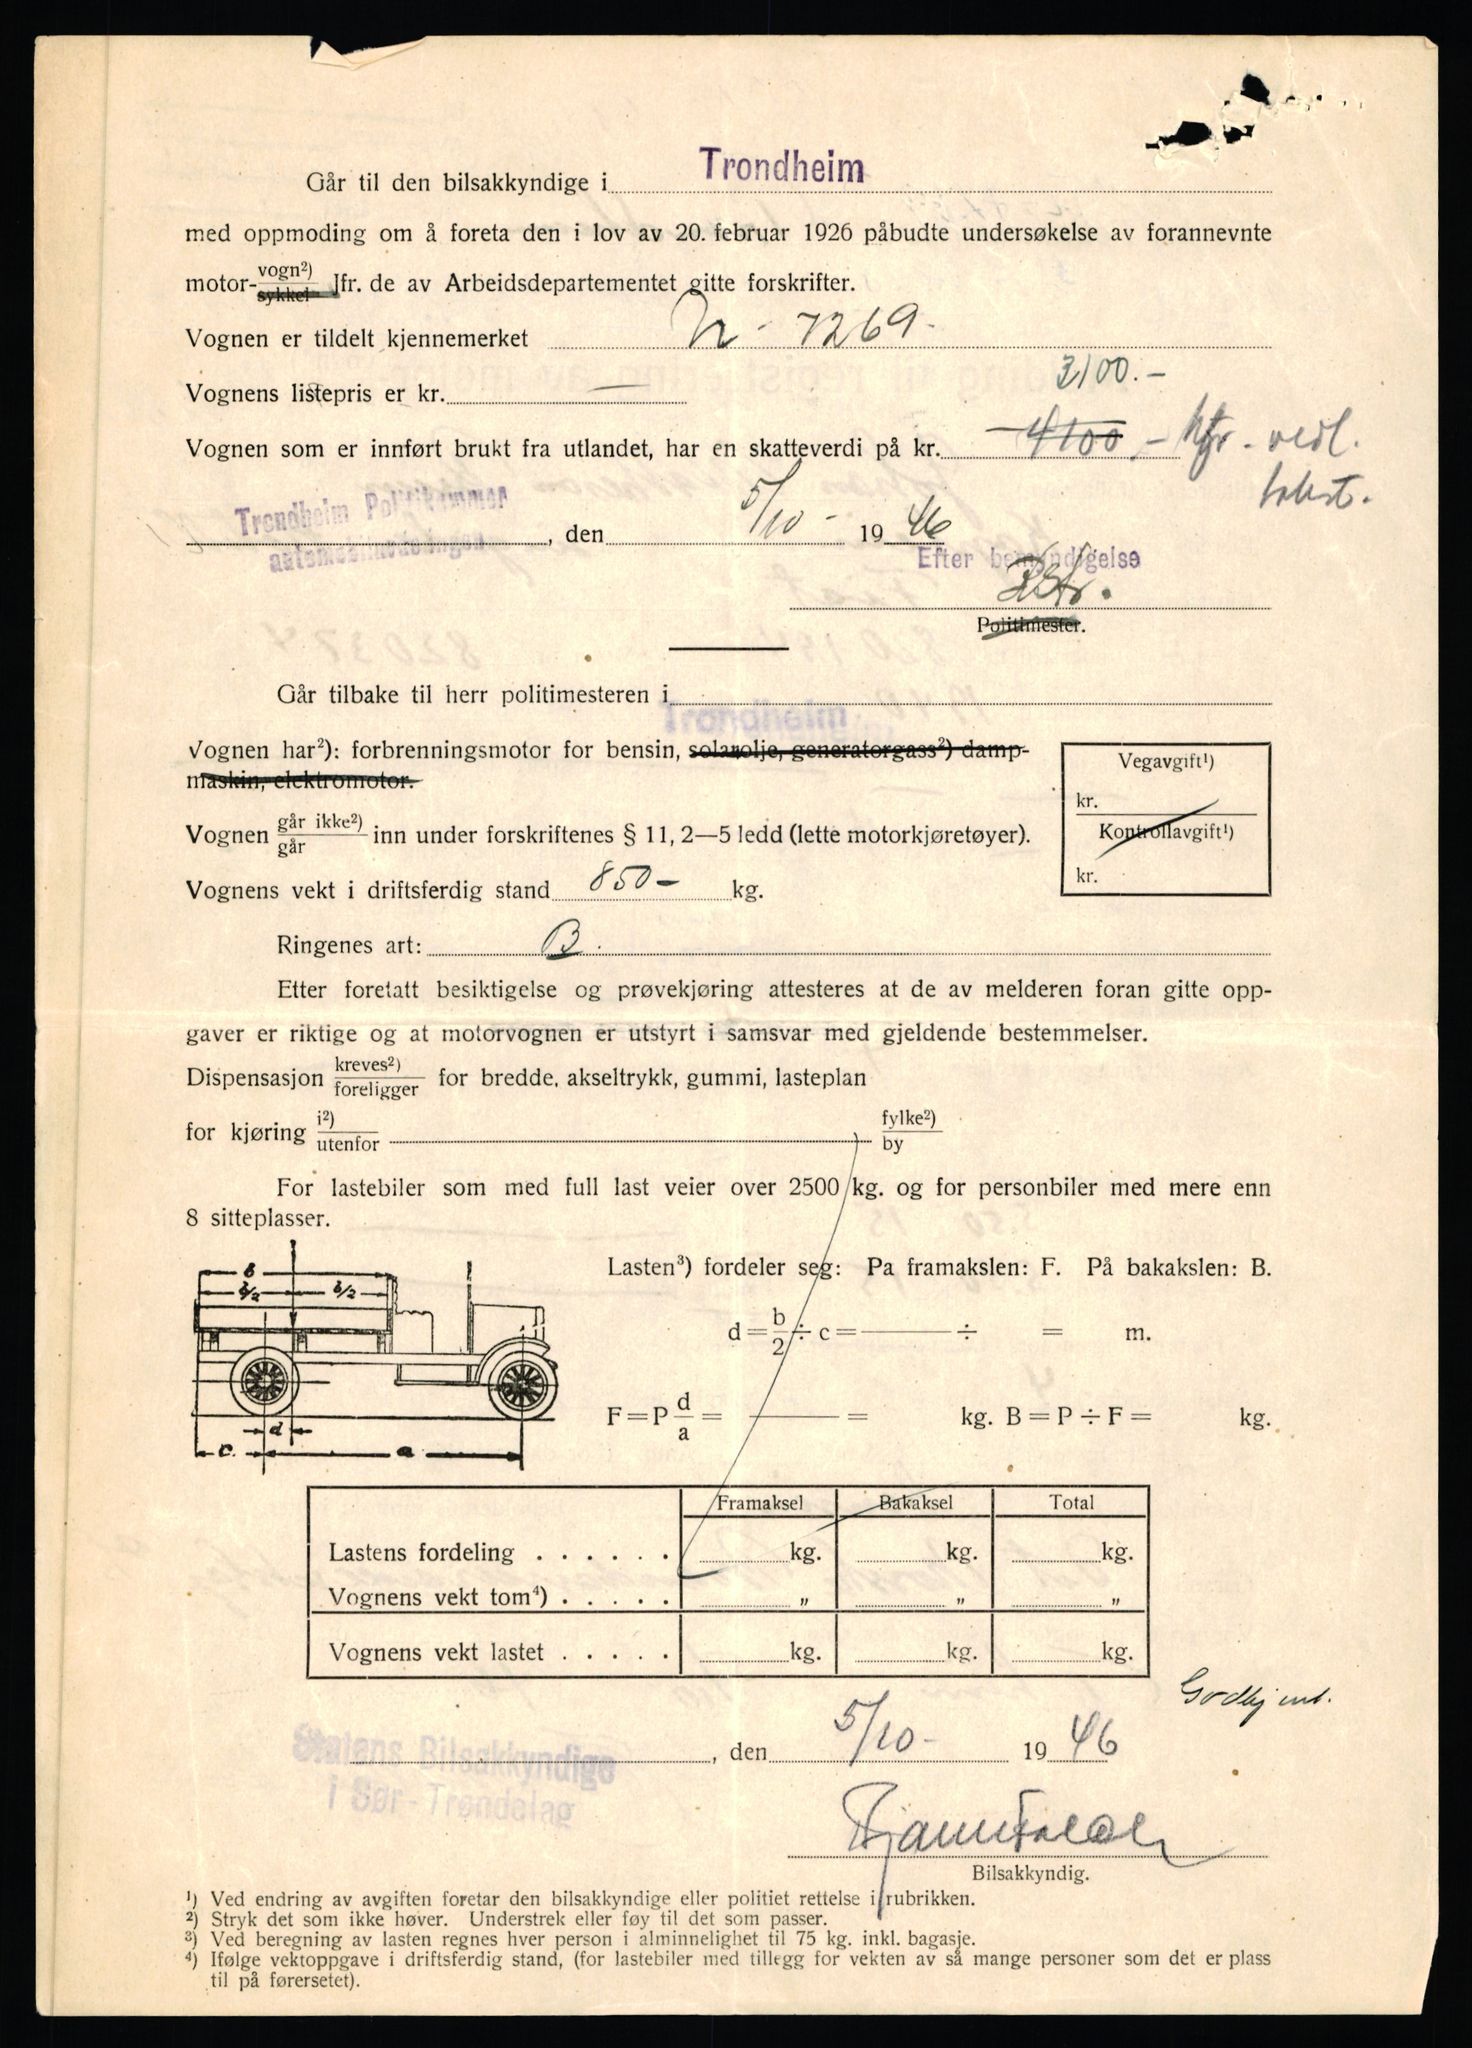 Går til den bilsakkyndige i Trondheim
med oppmoding om å foreta den i lov av 20. februar 1926 påbudte undersøkelse av forannevnte
motor- vogn²) / sykkel Jfr. de av Arbeidsdepartementet gitte forskrifter.
Vognen er tildelt kjennemerket 7269.
3100.-
Vognens listepris er kr. —
Vognen som er innført brukt fra utlandet, har en skatteverdi på kr. 4100,- vedl.
takst.
Trondheim Politikammer
5/10 - 19 46
automobilavdelingen, den
Efter bemyndigelse
Politimester.
Går tilbake til herr politimesteren i Trondheim
Vognen har²): forbrenningsmotor for bensin, solarolje, generatorgass²) damp-
maskin, elektromotor.
Vegavgift¹)
kr.
Kontrollavgift¹)
kr.
Vognen går ikke²) / går inn under forskriftenes § 11, 2—5 ledd (lette motorkjøretøyer).
Vognens vekt i driftsferdig stand 850 - kg.
Ringenes art: B.
Etter foretatt besiktigelse og prøvekjøring attesteres at de av melderen foran gitte opp-
gaver er riktige og at motorvognen er utstyrt i samsvar med gjeldende bestemmelser.
Dispensasjon kreves²) / foreligger for bredde, akseltrykk, gummi, lasteplan
for kjøring i²) / utenfor fylke²) / by
For lastebiler som med full last veier over 2500 kg. og for personbiler med mere enn
8 sitteplasser.
B
b/2 b/2
d
c. a
Lasten³) fordeler seg: Pa framakslen: F. På bakakslen: B.
d = b/2 ÷ c = — ÷ = m.
F = P d/a = — = kg. B = P ÷ F = kg.
Framaksel Bakaksel Total
Lastens fordeling . . . . . . kg. kg. kg.
Vognens vekt tom⁴) . . . . . „ „ „
Vognens vekt lastet . . . . . kg. kg. kg.
Godkjent.
Statens Bilsakkyndige, den 5/10 - 19 46
i Sør-Trøndelag
Bilsakkyndig.
¹) Ved endring av avgiften foretar den bilsakkyndige eller politiet rettelse i rubrikken.
²) Stryk det som ikke høver. Understrek eller føy til det som passer.
³) Ved beregning av lasten regnes hver person i alminnelighet til 75 kg. inkl. bagasje.
⁴) Ifølge vektoppgave i driftsferdig stand, (for lastebiler med tillegg for vekten av så mange personer som det er plass
til på førersetet).